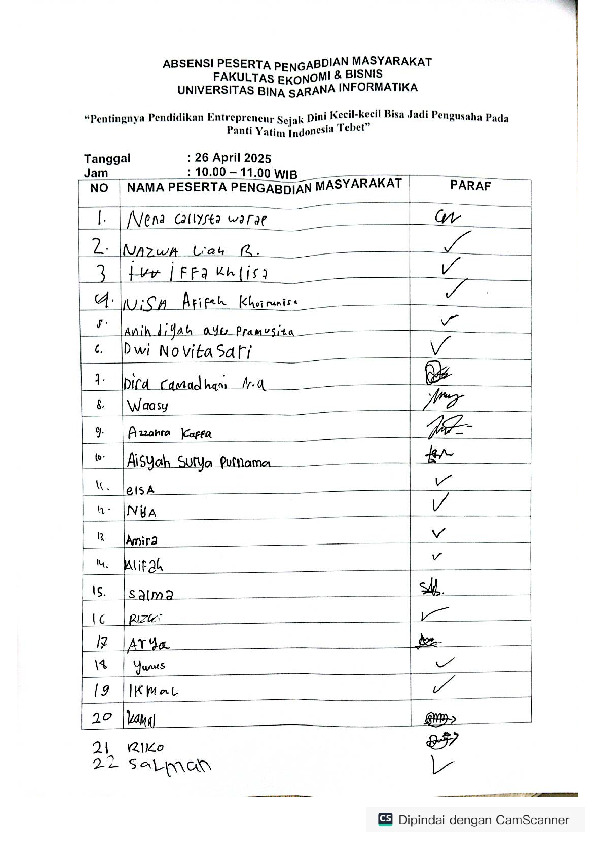 ABSENSI PESERTA PENGABDIAN MASYARAKAT
FAKULTAS EKONOMI & BISNIS
UNIVERSITAS BINA SARANA INFORMATIKA
“Pentingnya Pendidikan Entrepreneur Sejak Dini Kecil-kecil Bisa Jadi Pengusaha Pada
Panti Yatim Indonesia Tebet”
Tanggal : 26 April 2025
Jam : 10.00 – 11.00 WIB
NO NAMA PESERTA PENGABDIAN MASYARAKAT PARAF
1. Nena Callysta
2. NAZWA Liah R.
3 IFFa Khlisa
4. NiSA Afifah Khoirunisa
5. ayu Pramusita
6. Dwi NovitaSari
7. Dira ramadhani N.a
8. Waasy
9. Azzahra Kaffa
10. Aisyah Surya Purnama
11. elsA
12. 
13. Amira
14. Alifah
15. Salma
16 RIZKi
17 Arya
18 Yunus
19 IKMAL
20 Kamal
21 RIKO
22 Salman
CS Dipindai dengan CamScanner